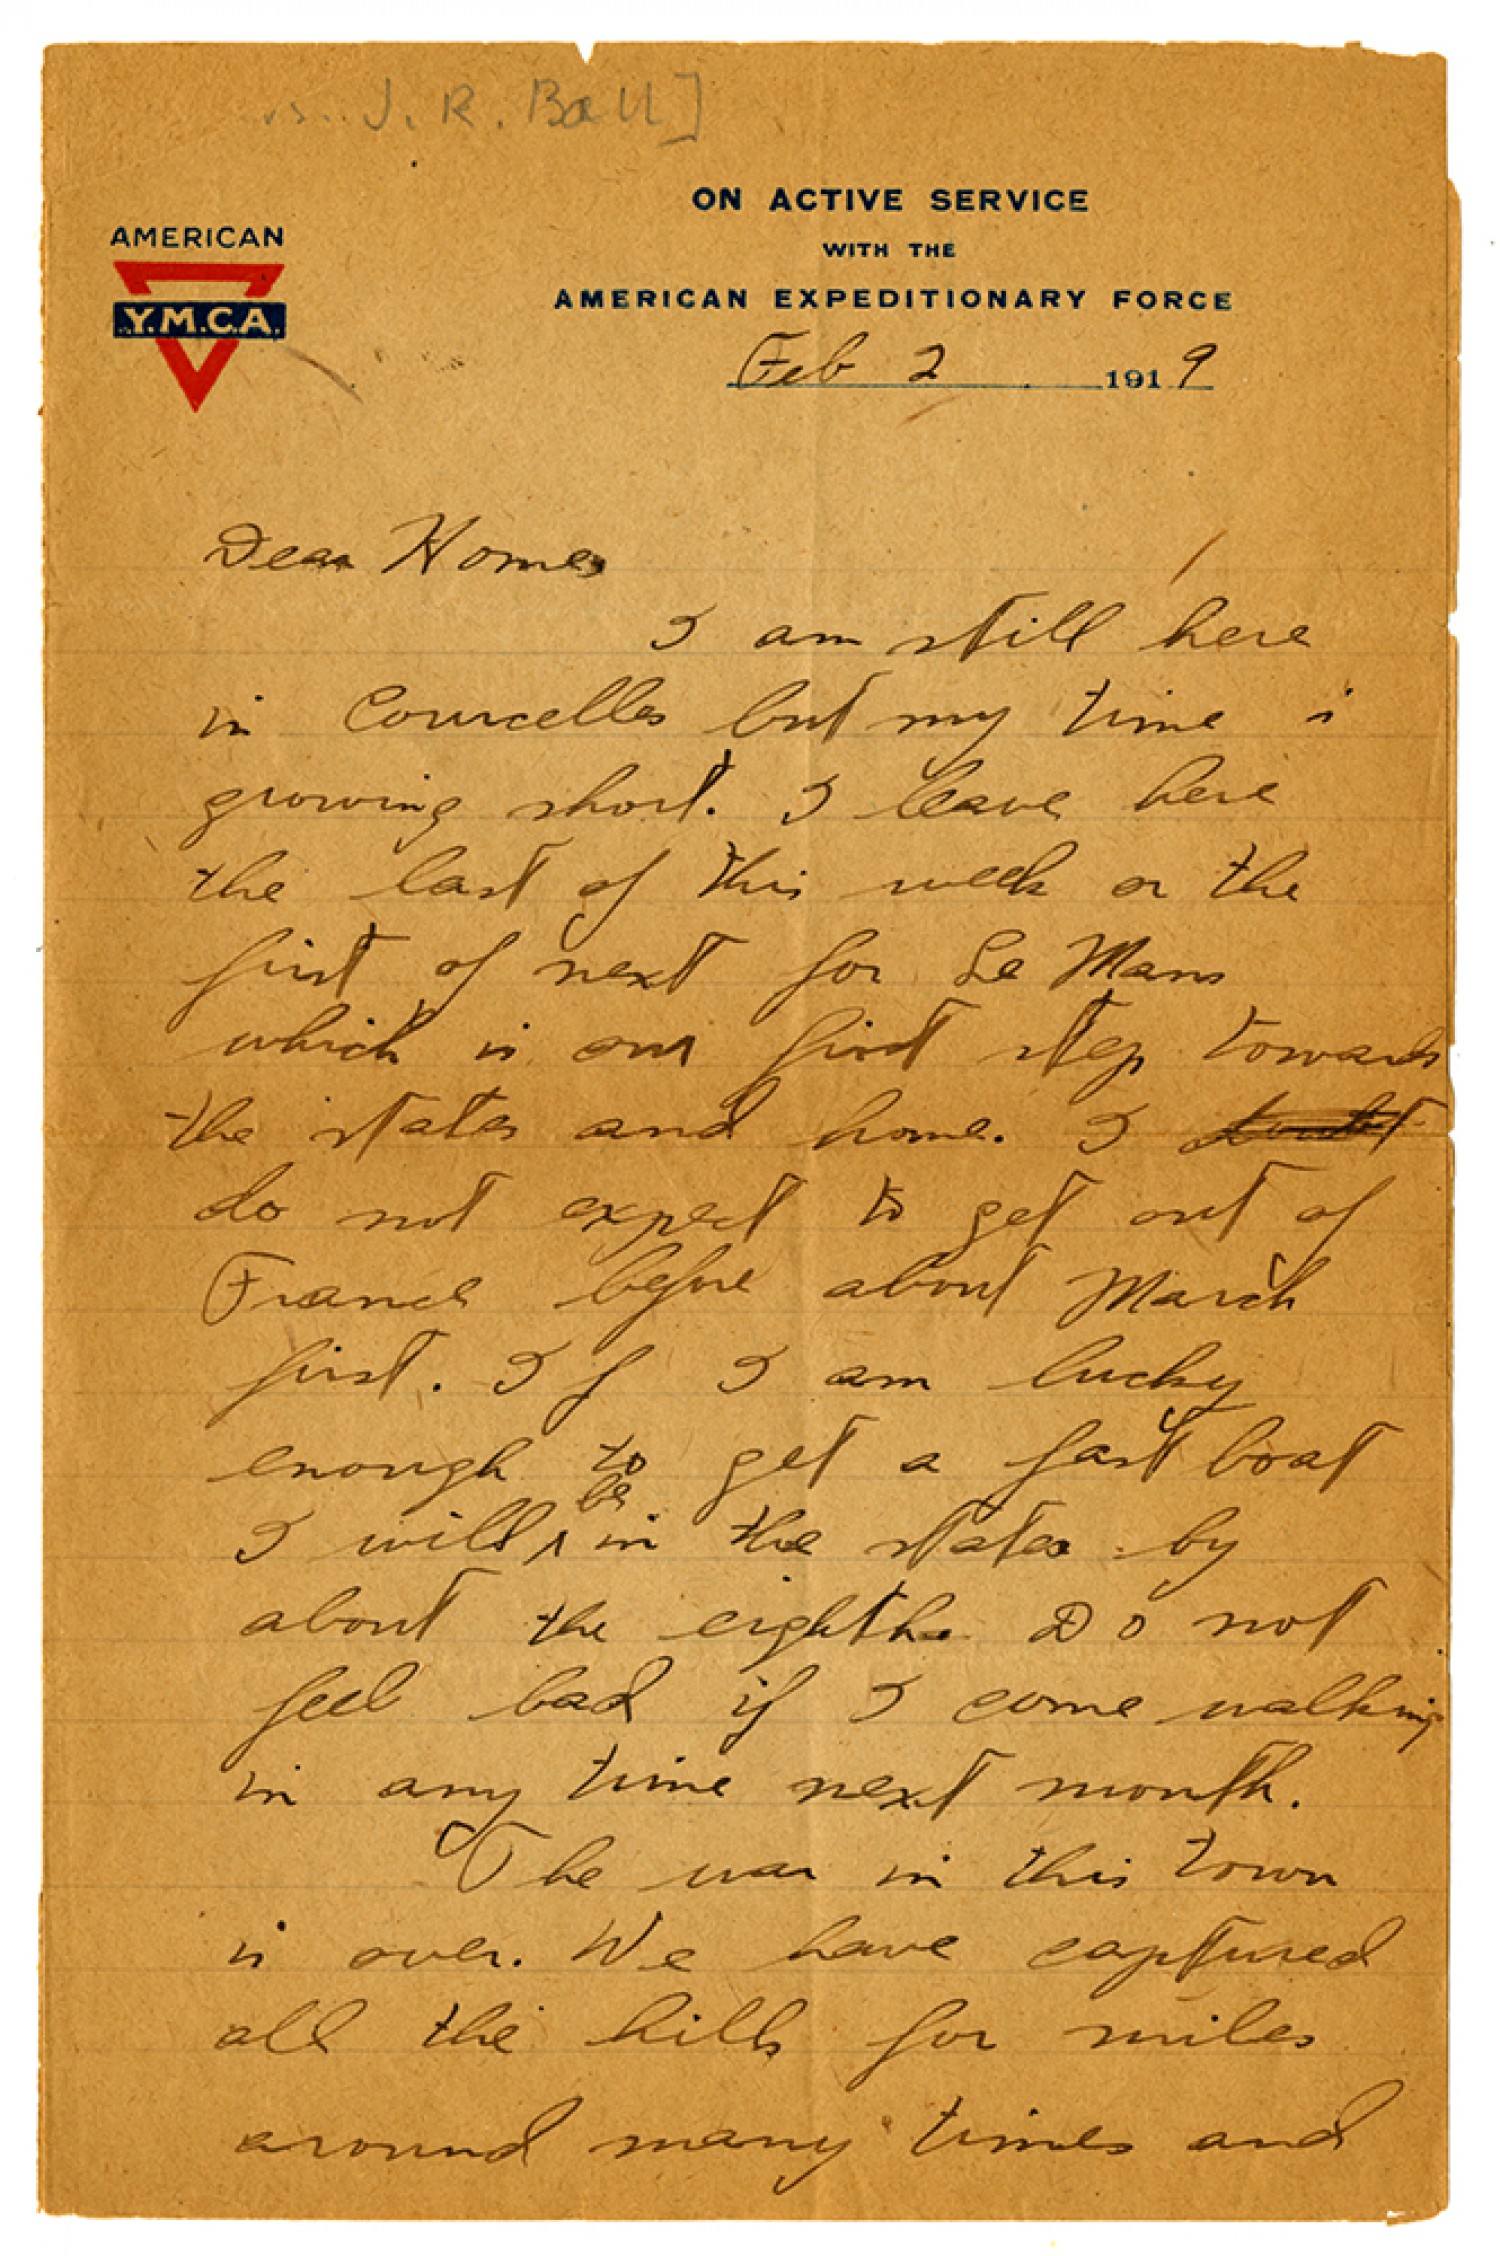 s. J. R. Ball]
ON ACTIVE SERVICE
WITH THE
AMERICAN EXPEDITIONARY FORCE
AMERICAN
Y.M.C.A.
Feb 2 1919
Dear Homes
I am still here
in Courcelles but my time i
growing short. I leave here
the last of this week or the
first of next for Le Mans
which is our first step towards
the states and home. I doubt
do not expect to get out of
France before about March
first. If I am lucky
enough to get a fast boat
I will be in the states by
about the eighth. Do not
feel bad if I come walking
in any time next month.
The war in this town
is over. We have captured
all the hills for miles
around many times and